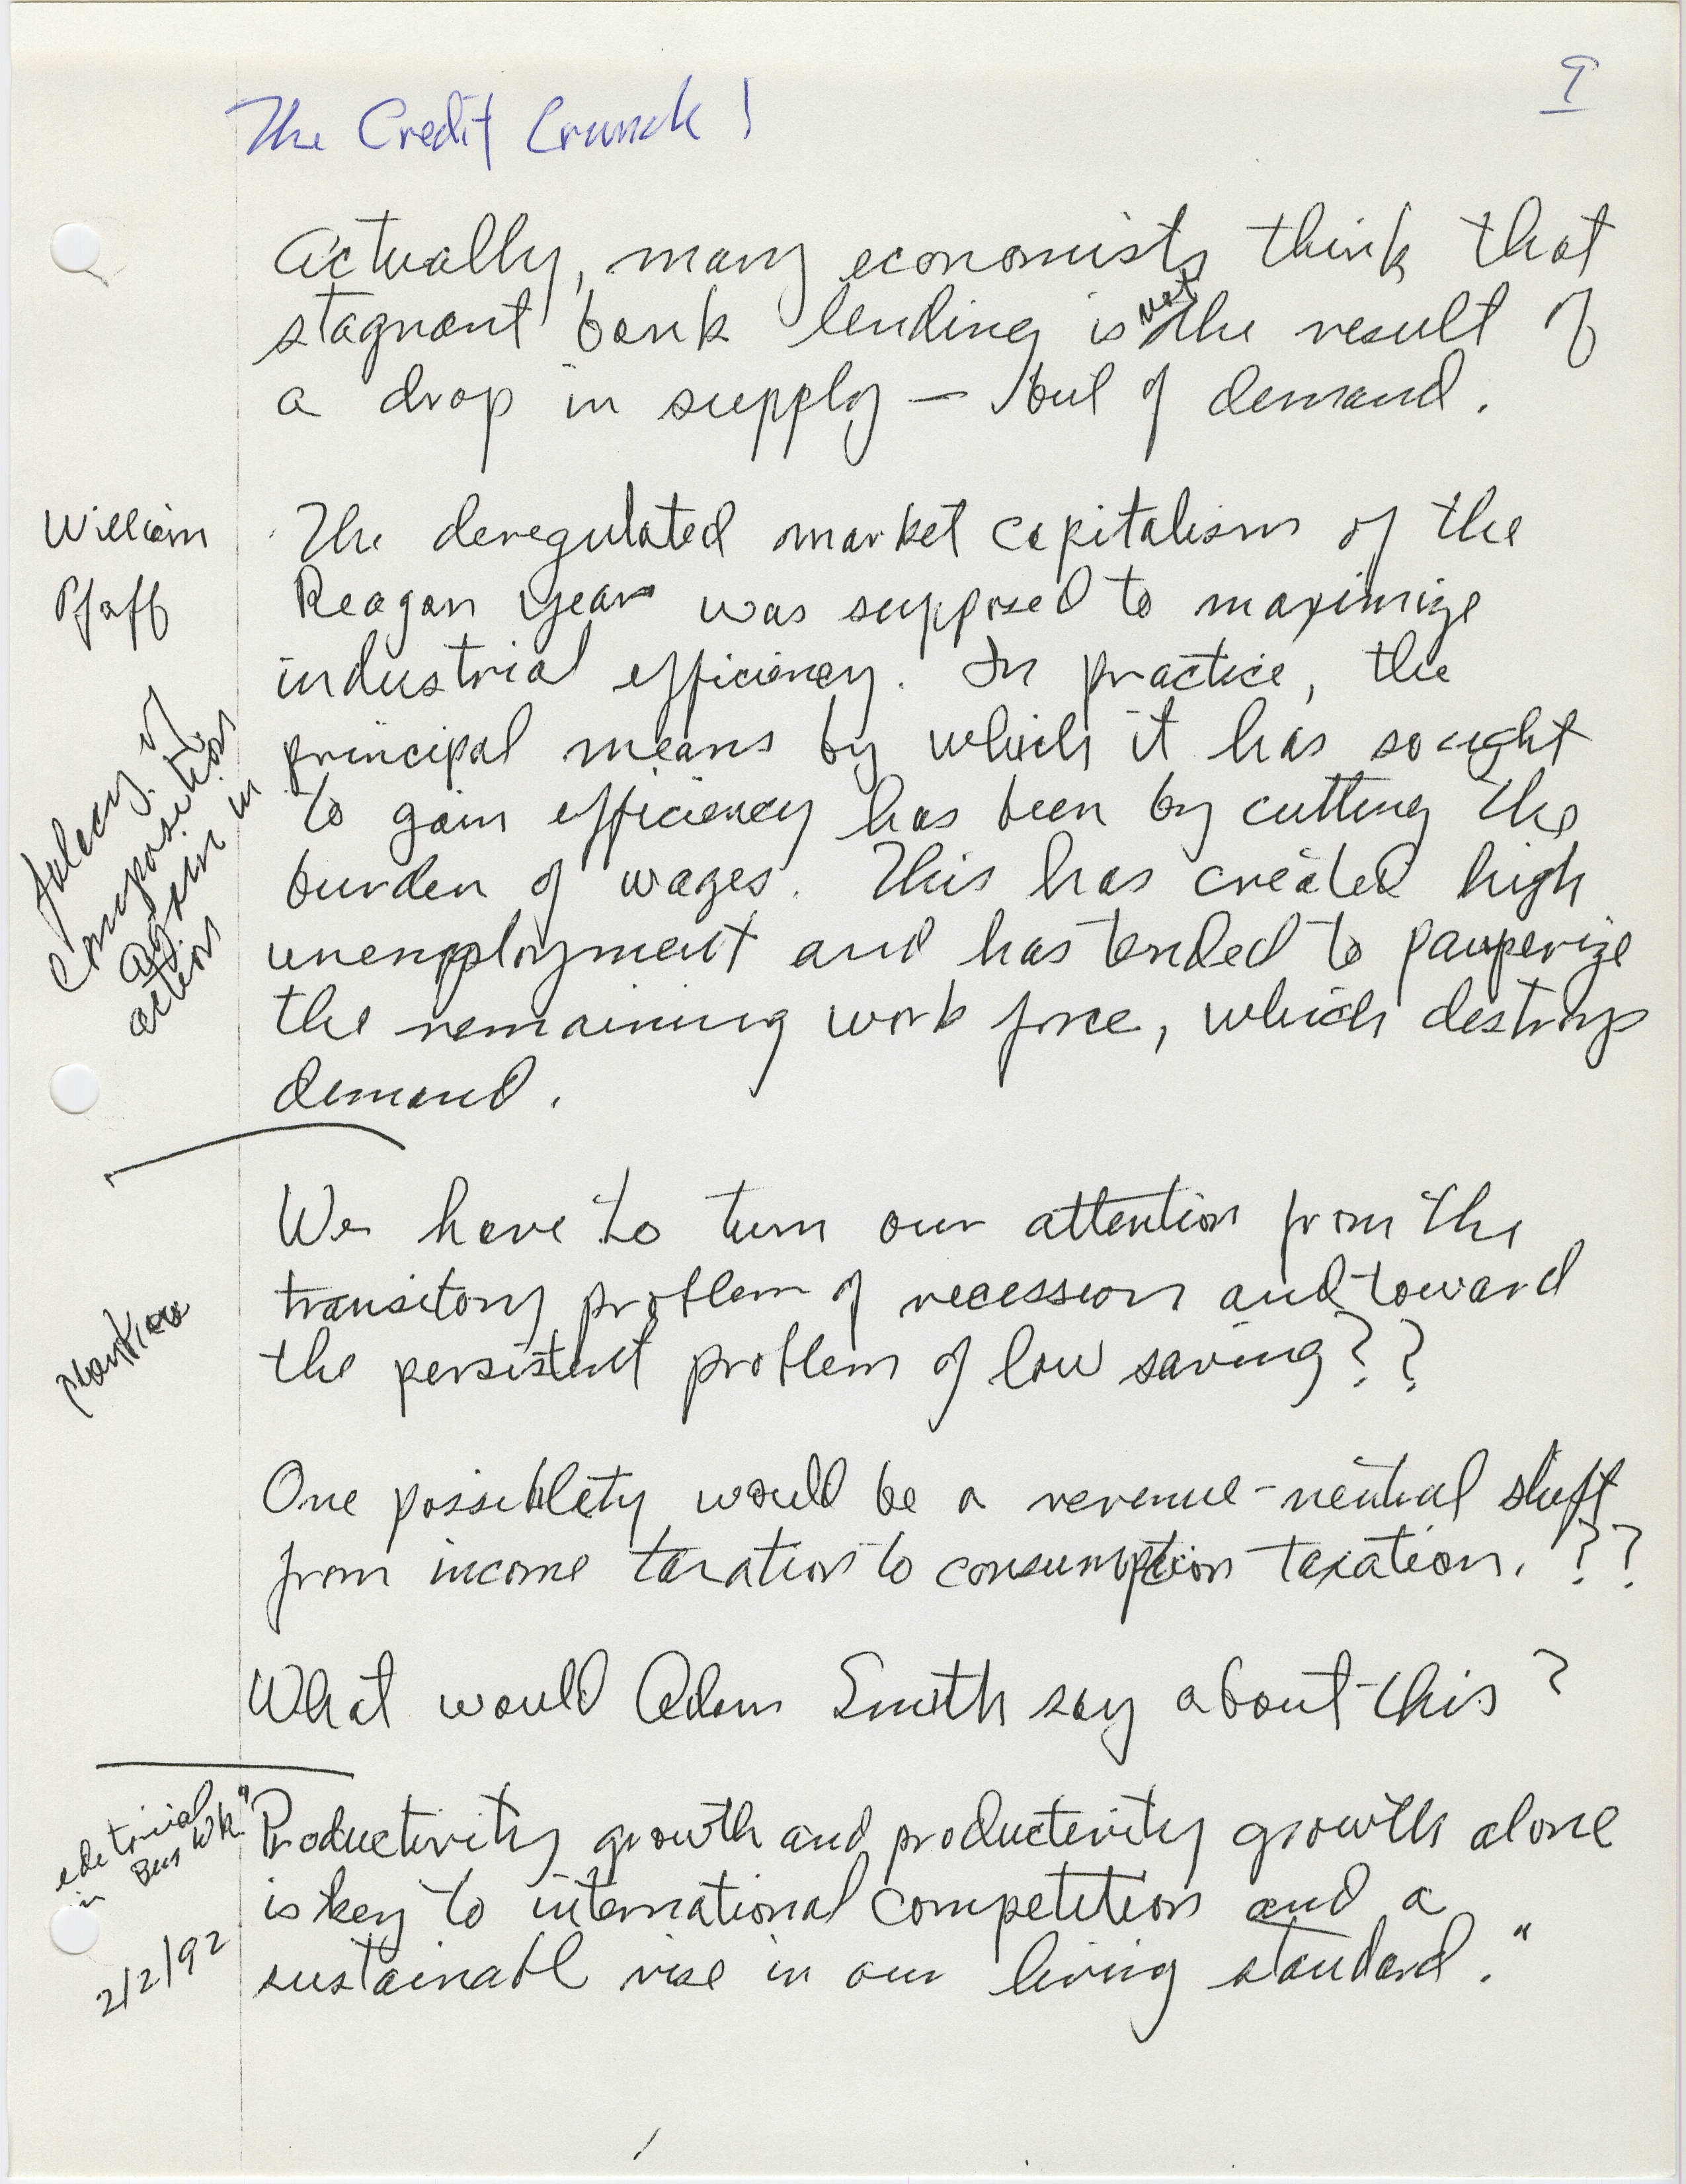 9
The Credit Crunch!
Actually, many economists think that
stagnant bank lending is not the result of
a drop in supply — but of demand.
William
Pfaff
The deregulated market capitalism of the
Reagan years was supposed to maximize
industrial efficiency. In practice, the
principal means by which it has sought
to gain efficiency has been by cutting the
burden of wages. This has created high
unemployment and has tended to pauperize
the remaining work force, which destroys
demand.
falacy of
composition
again in
action
We have to turn our attention from the
transitory problem of recession and toward
the persistent problem of low saving??
Mankiw
One possiblity would be a revenue-neutral shift
from income taxation to consumption taxation. ??
What would Adam Smith say about this?
editorial
in Bus Wk
2/2/92
"Productivity growth and productivity growth alone
is key to international competition and a
sustainabl rise in our living standard."